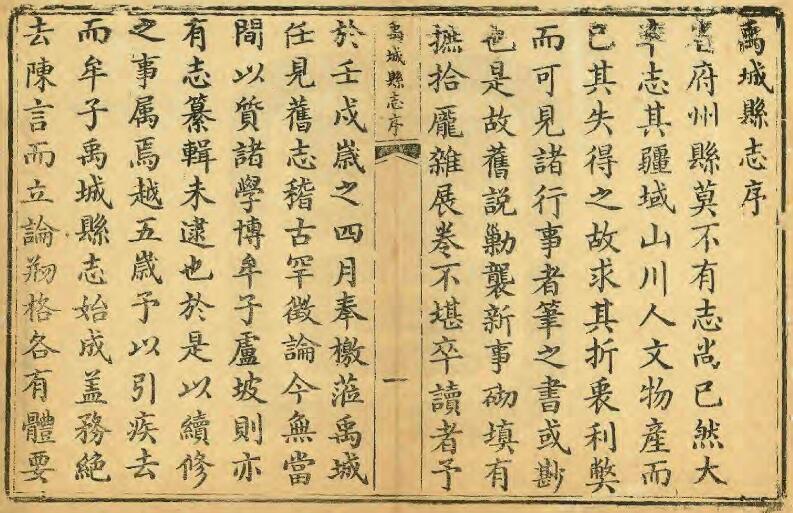 禹城縣志序
省府州縣莫不有志尚已然大
率志其疆域山川人文物產而
已其失得之故求其折衷利弊
而可見諸行事者筆之書或尠
也是故舊說勦襲新事砌填有
摭拾龐雜展卷不堪卒讀者予
禹城縣志序
一
於壬戌嵗之四月奉檄蒞禹城
任見舊志稽古罕徵論今無當
間以質諸學博牟子盧坡則亦
有志纂輯未逮也於是以續修
之事属焉越五嵗予以引疾去
而牟子禹城縣志始成盖務絶
去陳言而立論剏格各有體要